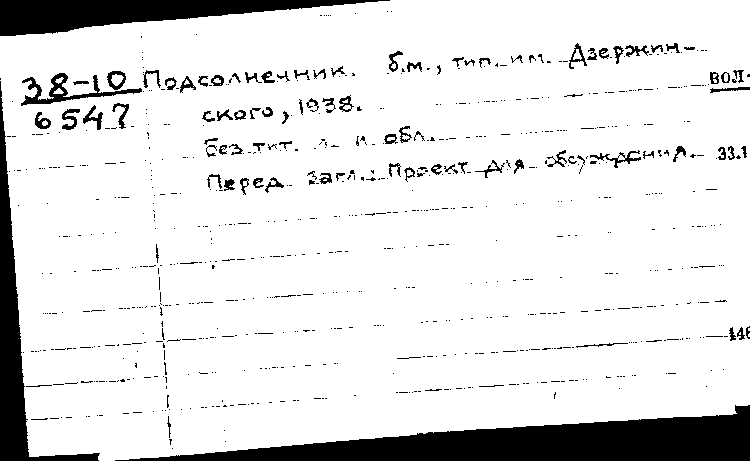 38-10 Подсолнечник. б.м., тип. им. Дзержин-
6547 ского, 1938.
вол-
Без тит. л. и обл.
Перед загл.: Проект для обсуждения.
33.1
146